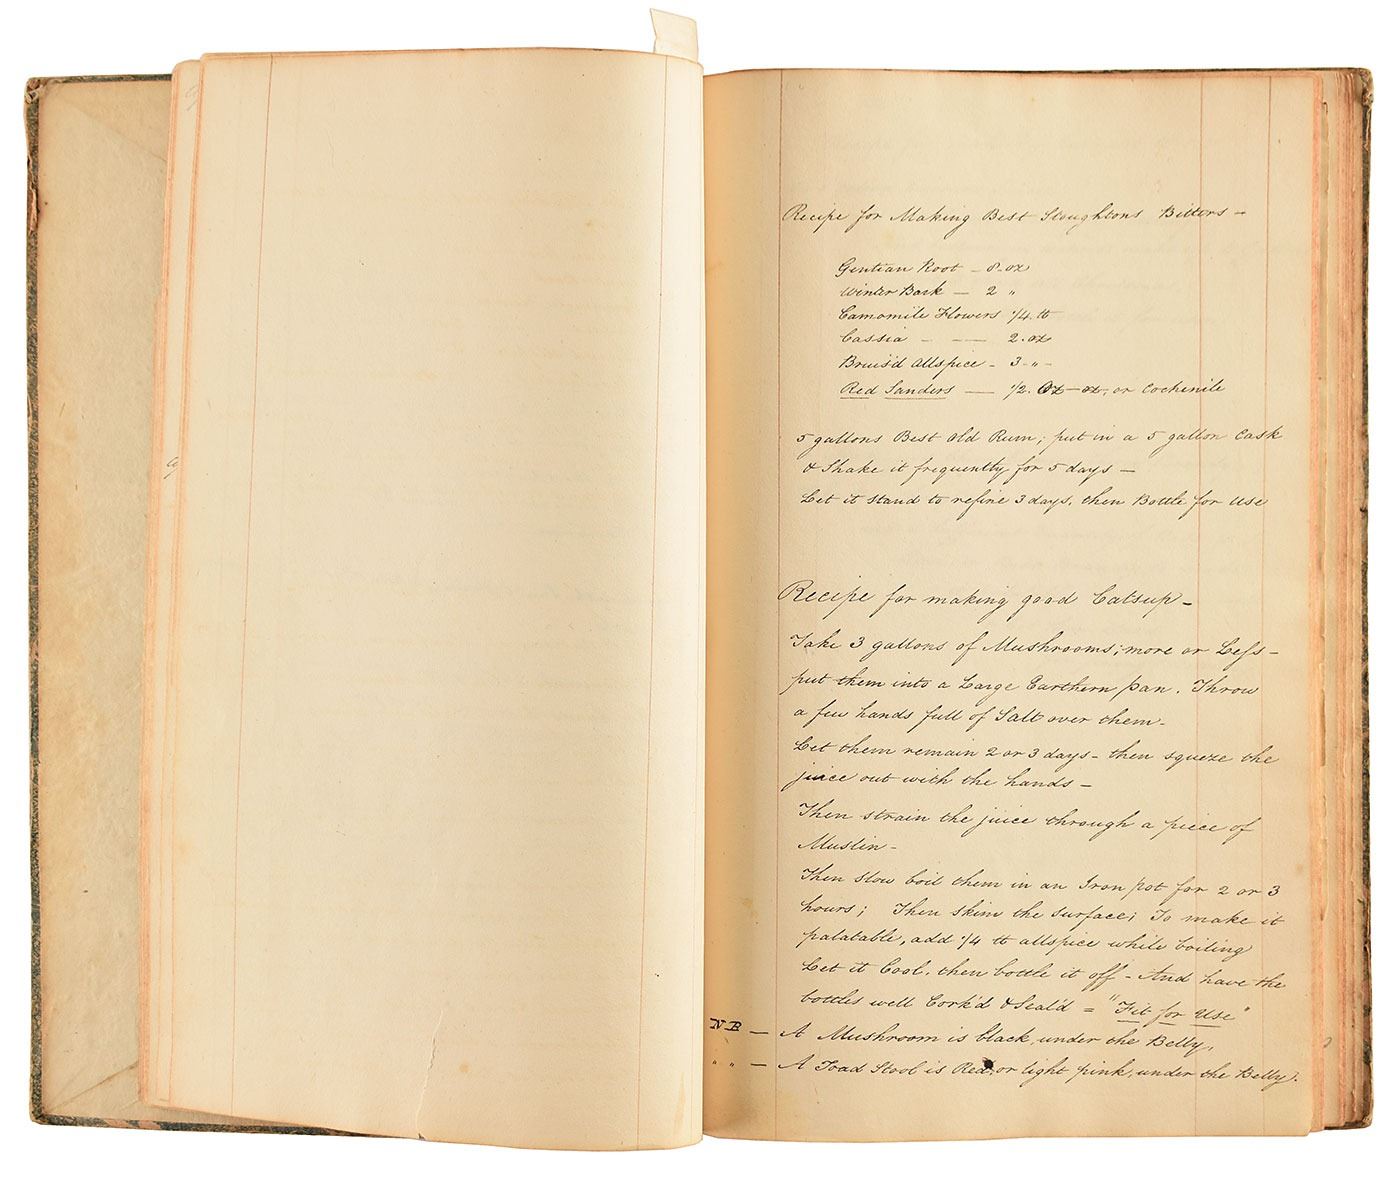 Recipe for Making Best Stoughtons Bitters –
Gentian Root – 8 – oz
Winter Bark — 2 "
Camomile Flowers 1/4 lb
Cassia - — 2 . oz
Bruis'd Allspice - 3 - " -
Red Sanders — 1/2 . oz – oz, or Cochinile
5 gallons Best Old Rum; put in a 5 gallon Cask
& Shake it frequently for 5 days —
Let it stand to refine 3 days, then Bottle for Use
Recipe for making good Catsup –
Take 3 gallons of Mushrooms; more or Less –
put them into a Large Earthern pan. Throw
a few hands full of Salt over them –
Let them remain 2 or 3 days – then squeze the
juice out with the hands –
Then strain the juice through a piece of
Muslin –
Then slow boil them in an Iron pot for 2 or 3
hours; Then skim the surface; To make it
palatable, add 1/4 lb allspice while boiling
Let it Cool, then bottle it off – And have the
bottles well Cork'd & Seal'd = "Fit for Use"
NB — A Mushroom is black, under the Belly,
" " — A Toad Stool is Red, or light pink, under the Belly.